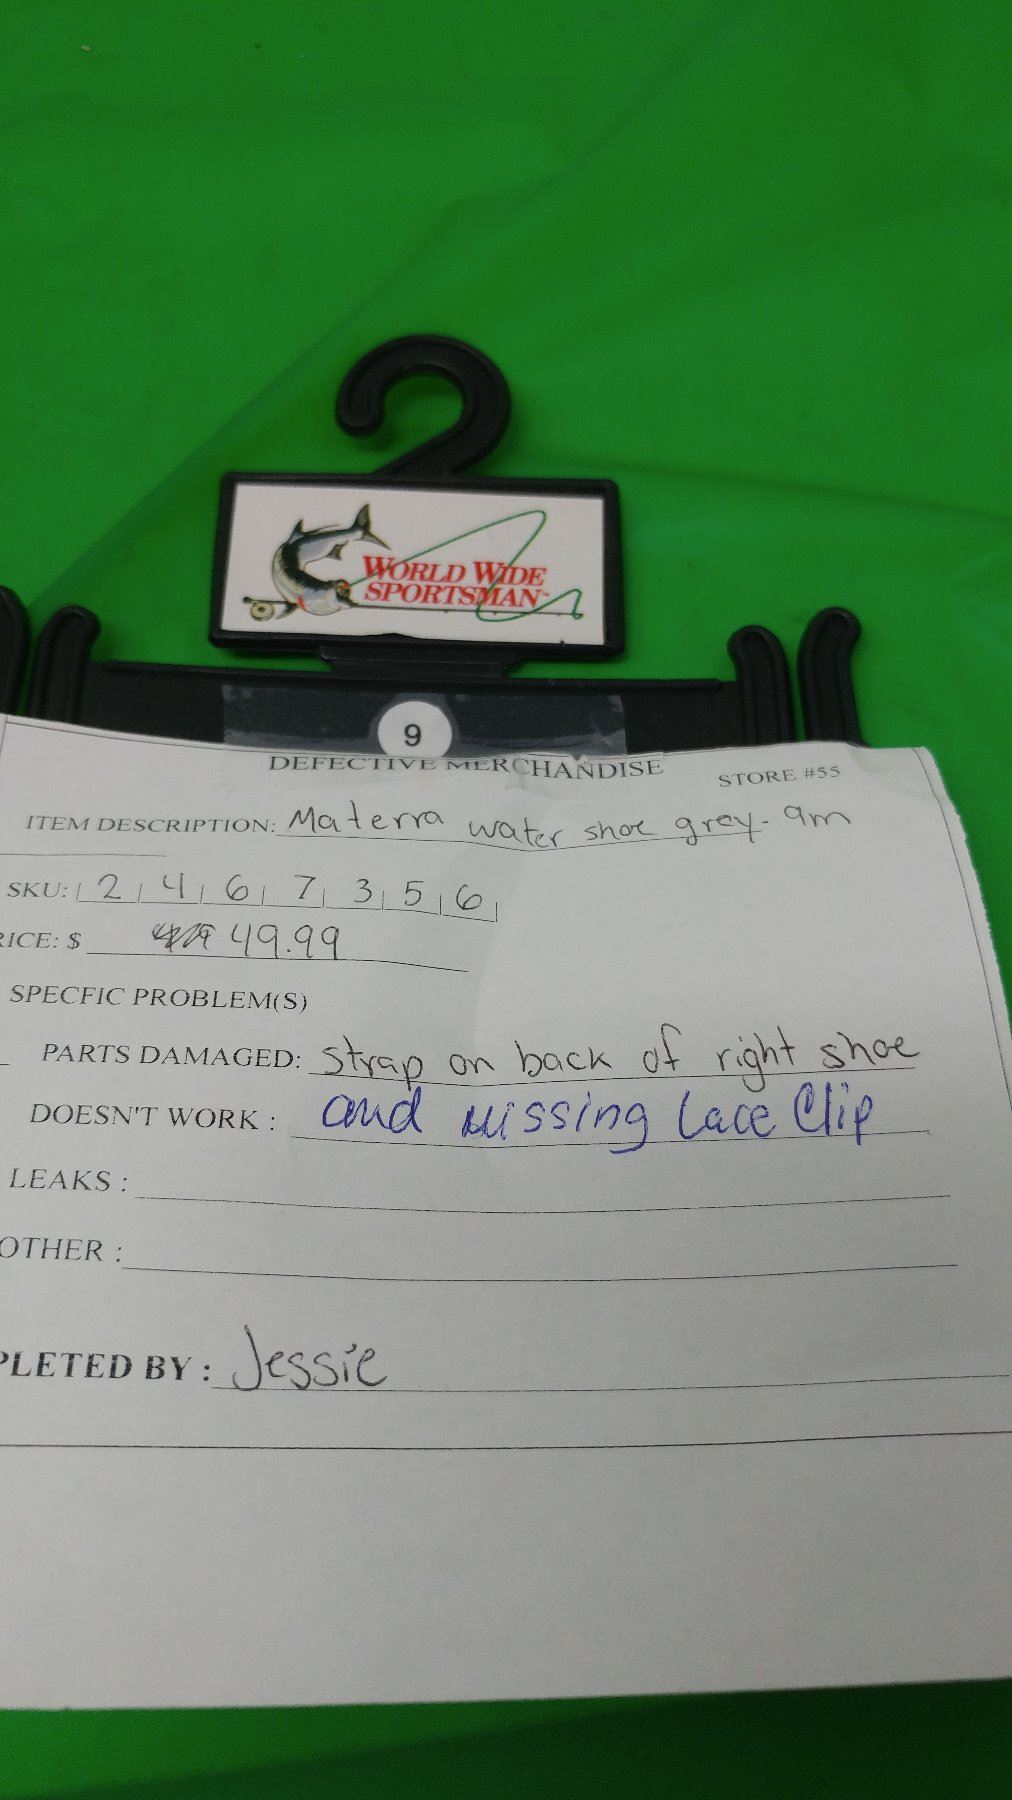 WORLD WIDE
SPORTSMAN
9
DEFECTIVE MERCHANDISE STORE #55
ITEM DESCRIPTION: Materra water shoe grey - 9m
SKU: 2 4 6 7 3 5 6
RICE: $ 49.99
SPECFIC PROBLEM(S)
PARTS DAMAGED: strap on back of right shoe
DOESN'T WORK : and missing Lace Clip
LEAKS :
OTHER :
PLETED BY : Jessie